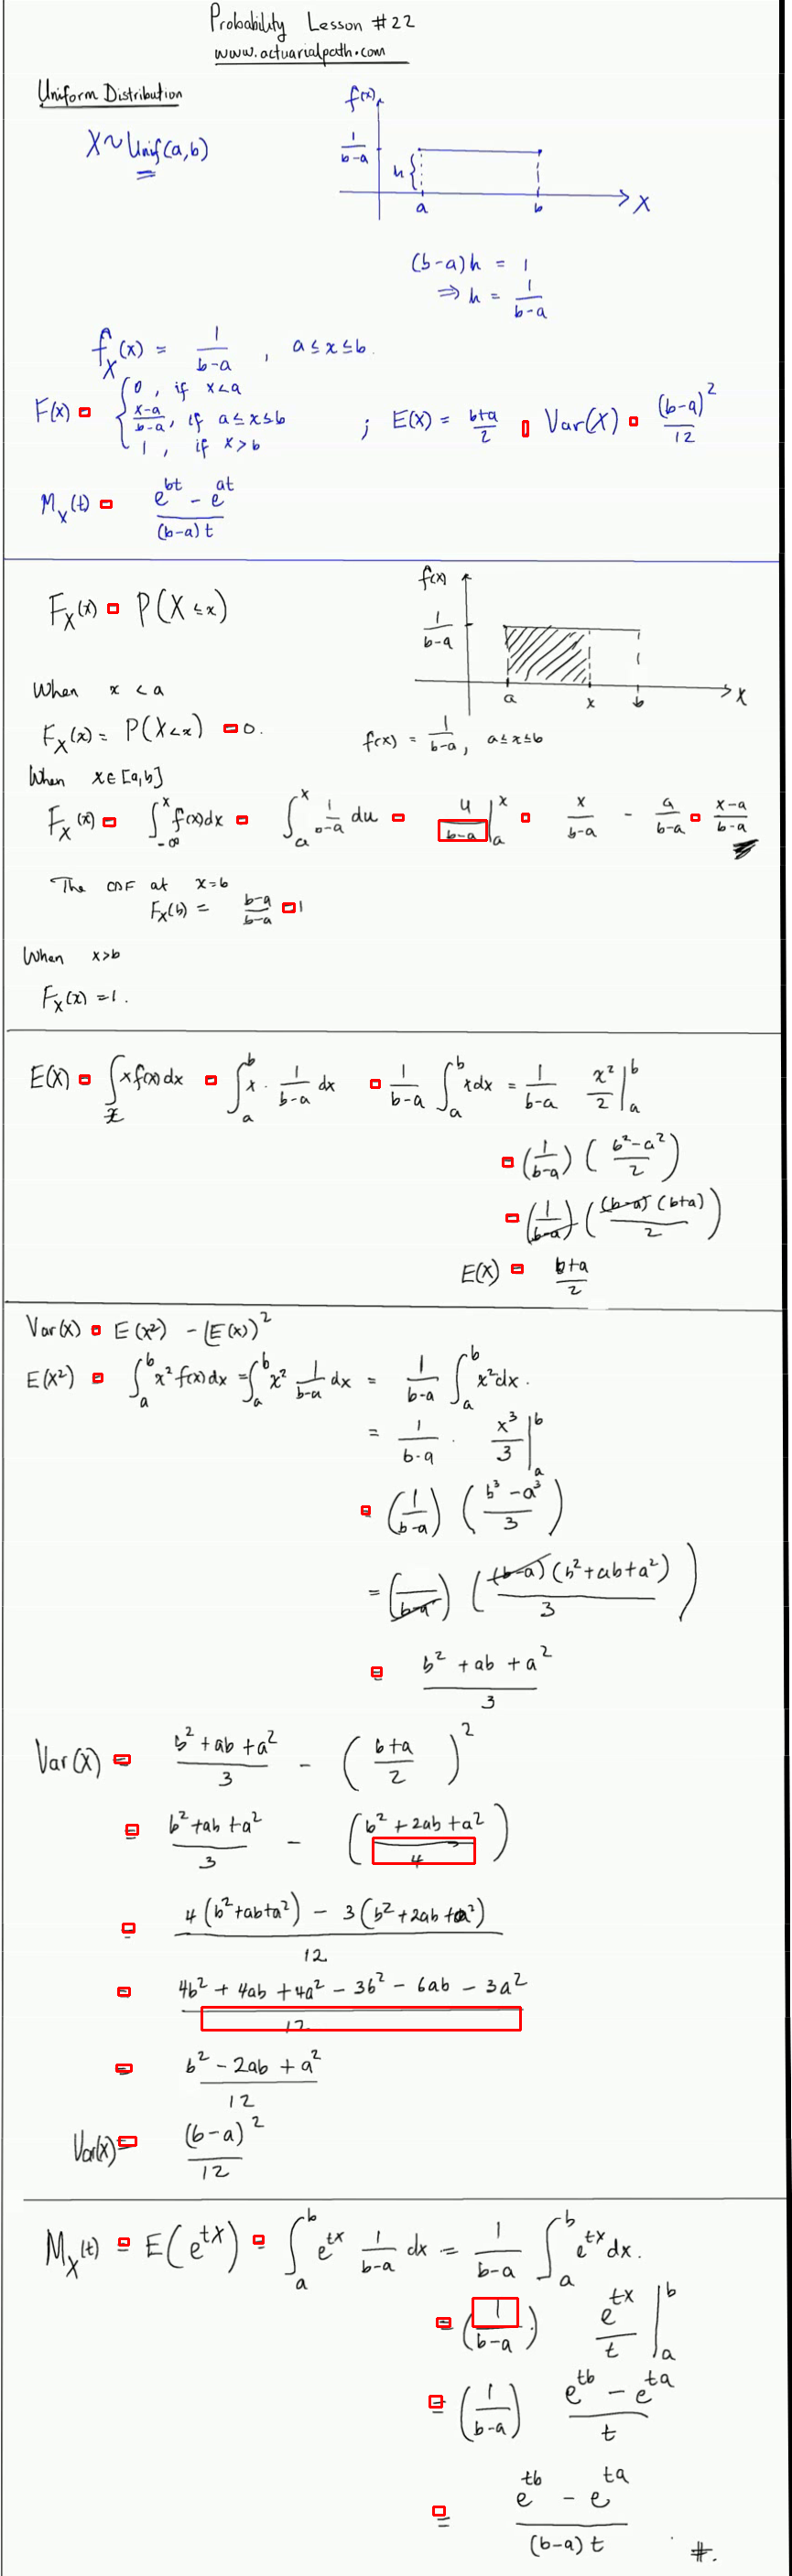 Probability Lesson #22
www.actuarialpath.com
Uniform Distribution
X ~ Unif(a,b)
f(x)
1/(b-a)
h {
a b X
(b-a)h = 1
⇒ h = 1/(b-a)
f_X(x) = 1/(b-a) , a ≤ x ≤ b.
F(x) = { 0 , if x < a
(x-a)/(b-a), if a ≤ x ≤ b
1 , if x > b
; E(X) = (b+a)/2 Var(X) = (b-a)^2/12
M_X(t) = (e^{bt} - e^{at})/((b-a)t)
F_X(x) = P(X ≤ x)
f(x)
1/(b-a)
a x b X
f(x) = 1/(b-a), a ≤ x ≤ b
When x < a
F_X(x) = P(X < x) = 0.
When x ∈ [a,b]
F_X(x) = ∫_{-∞}^{x} f(x)dx = ∫_a^x 1/(b-a) du = u/(b-a) |_a^x = x/(b-a) - a/(b-a) = (x-a)/(b-a)
The CDF at x=b
F_X(b) = (b-a)/(b-a) = 1
When x > b
F_X(x) = 1.
E(X) = ∫_x x f(x) dx = ∫_a^b x · 1/(b-a) dx = 1/(b-a) ∫_a^b x dx = 1/(b-a) x²/2 |_a^b
= (1/(b-a)) ((b²-a²)/2)
= (1/(b-a)) ((b-a)(b+a)/2)
E(X) = (b+a)/2
Var(X) = E(X²) - (E(X))²
E(X²) = ∫_a^b x² f(x) dx = ∫_a^b x² 1/(b-a) dx = 1/(b-a) ∫_a^b x² dx.
= 1/(b-a) · x³/3 |_a^b
= (1/(b-a)) ((b³ - a³)/3)
= (/(b-a)) ((b-a)(b²+ab+a²)/3)
= (b² + ab + a²)/3
Var(X) = (b² + ab + a²)/3 - ((b+a)/2)²
= (b² + ab + a²)/3 - ((b² + 2ab + a²)/4)
= (4(b²+ab+a²) - 3(b²+2ab+a²))/12
= (4b² + 4ab + 4a² - 3b² - 6ab - 3a²)/12
= (b² - 2ab + a²)/12
Var(X) = (b-a)²/12
M_X(t) = E(e^{tX}) = ∫_a^b e^{tx} 1/(b-a) dx = 1/(b-a) ∫_a^b e^{tx} dx.
= (1/(b-a)) e^{tx}/t |_a^b
= (1/(b-a)) (e^{tb} - e^{ta})/t
= (e^{tb} - e^{ta})/((b-a)t) #.